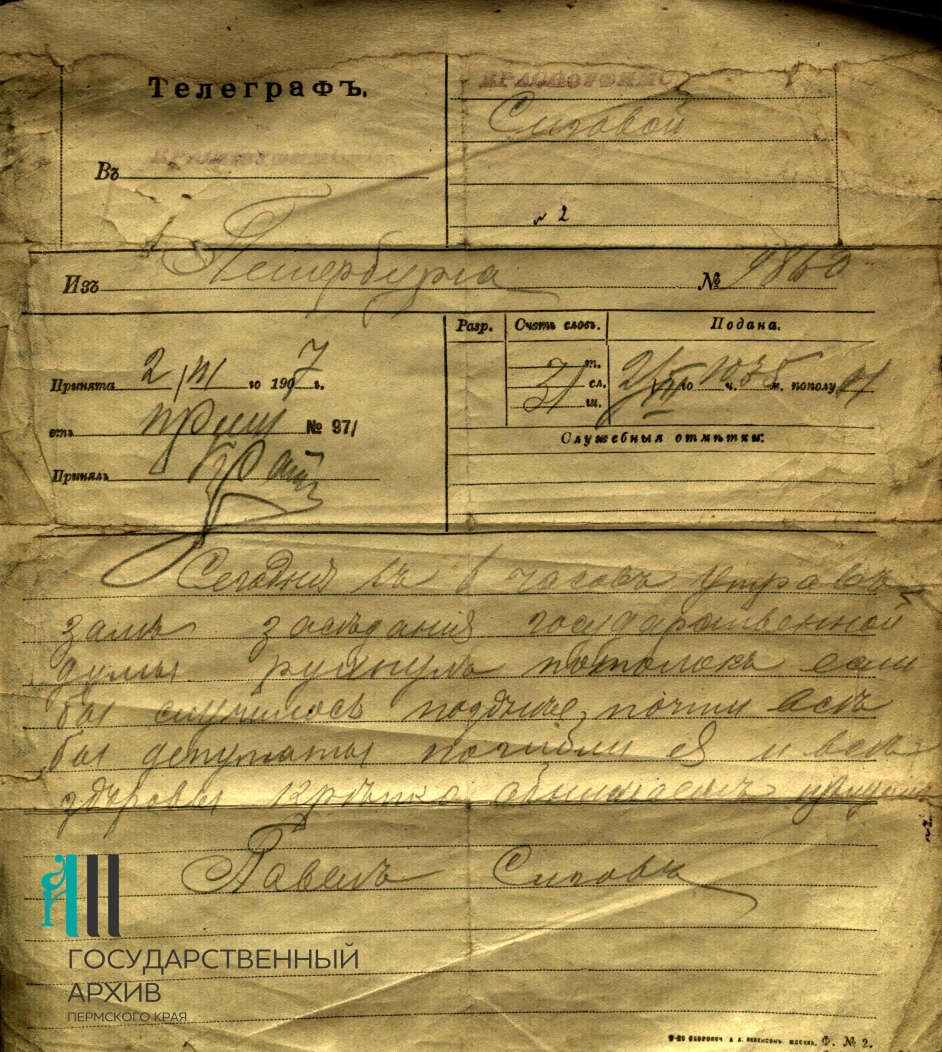 Телеграфъ.
КРАСНОУФИМС
Сиговой
Въ
№ 2
Изъ Петербурга № 9860
Принята 2/III 1907 г.
Разр. Счетъ словъ. Подана.
31 т. сл. ш.
2/III го 10 ч. 35 м. пополу
отъ № 97/
Принялъ
Служебныя отмѣтки:
Сегодня въ 6 часовъ утра въ
залѣ засѣданія государственной
думы рухнулъ потолокъ если
бы случилось позднѣе, почти всѣ
бы депутаты погибли я и всѣ
здоровы крѣпко обнимаемъ цѣлуемъ
Павелъ Сиговъ
ГОСУДАРСТВЕННЫЙ
АРХИВ
ПЕРМСКОГО КРАЯ
МОСКВА. Ф. № 2.